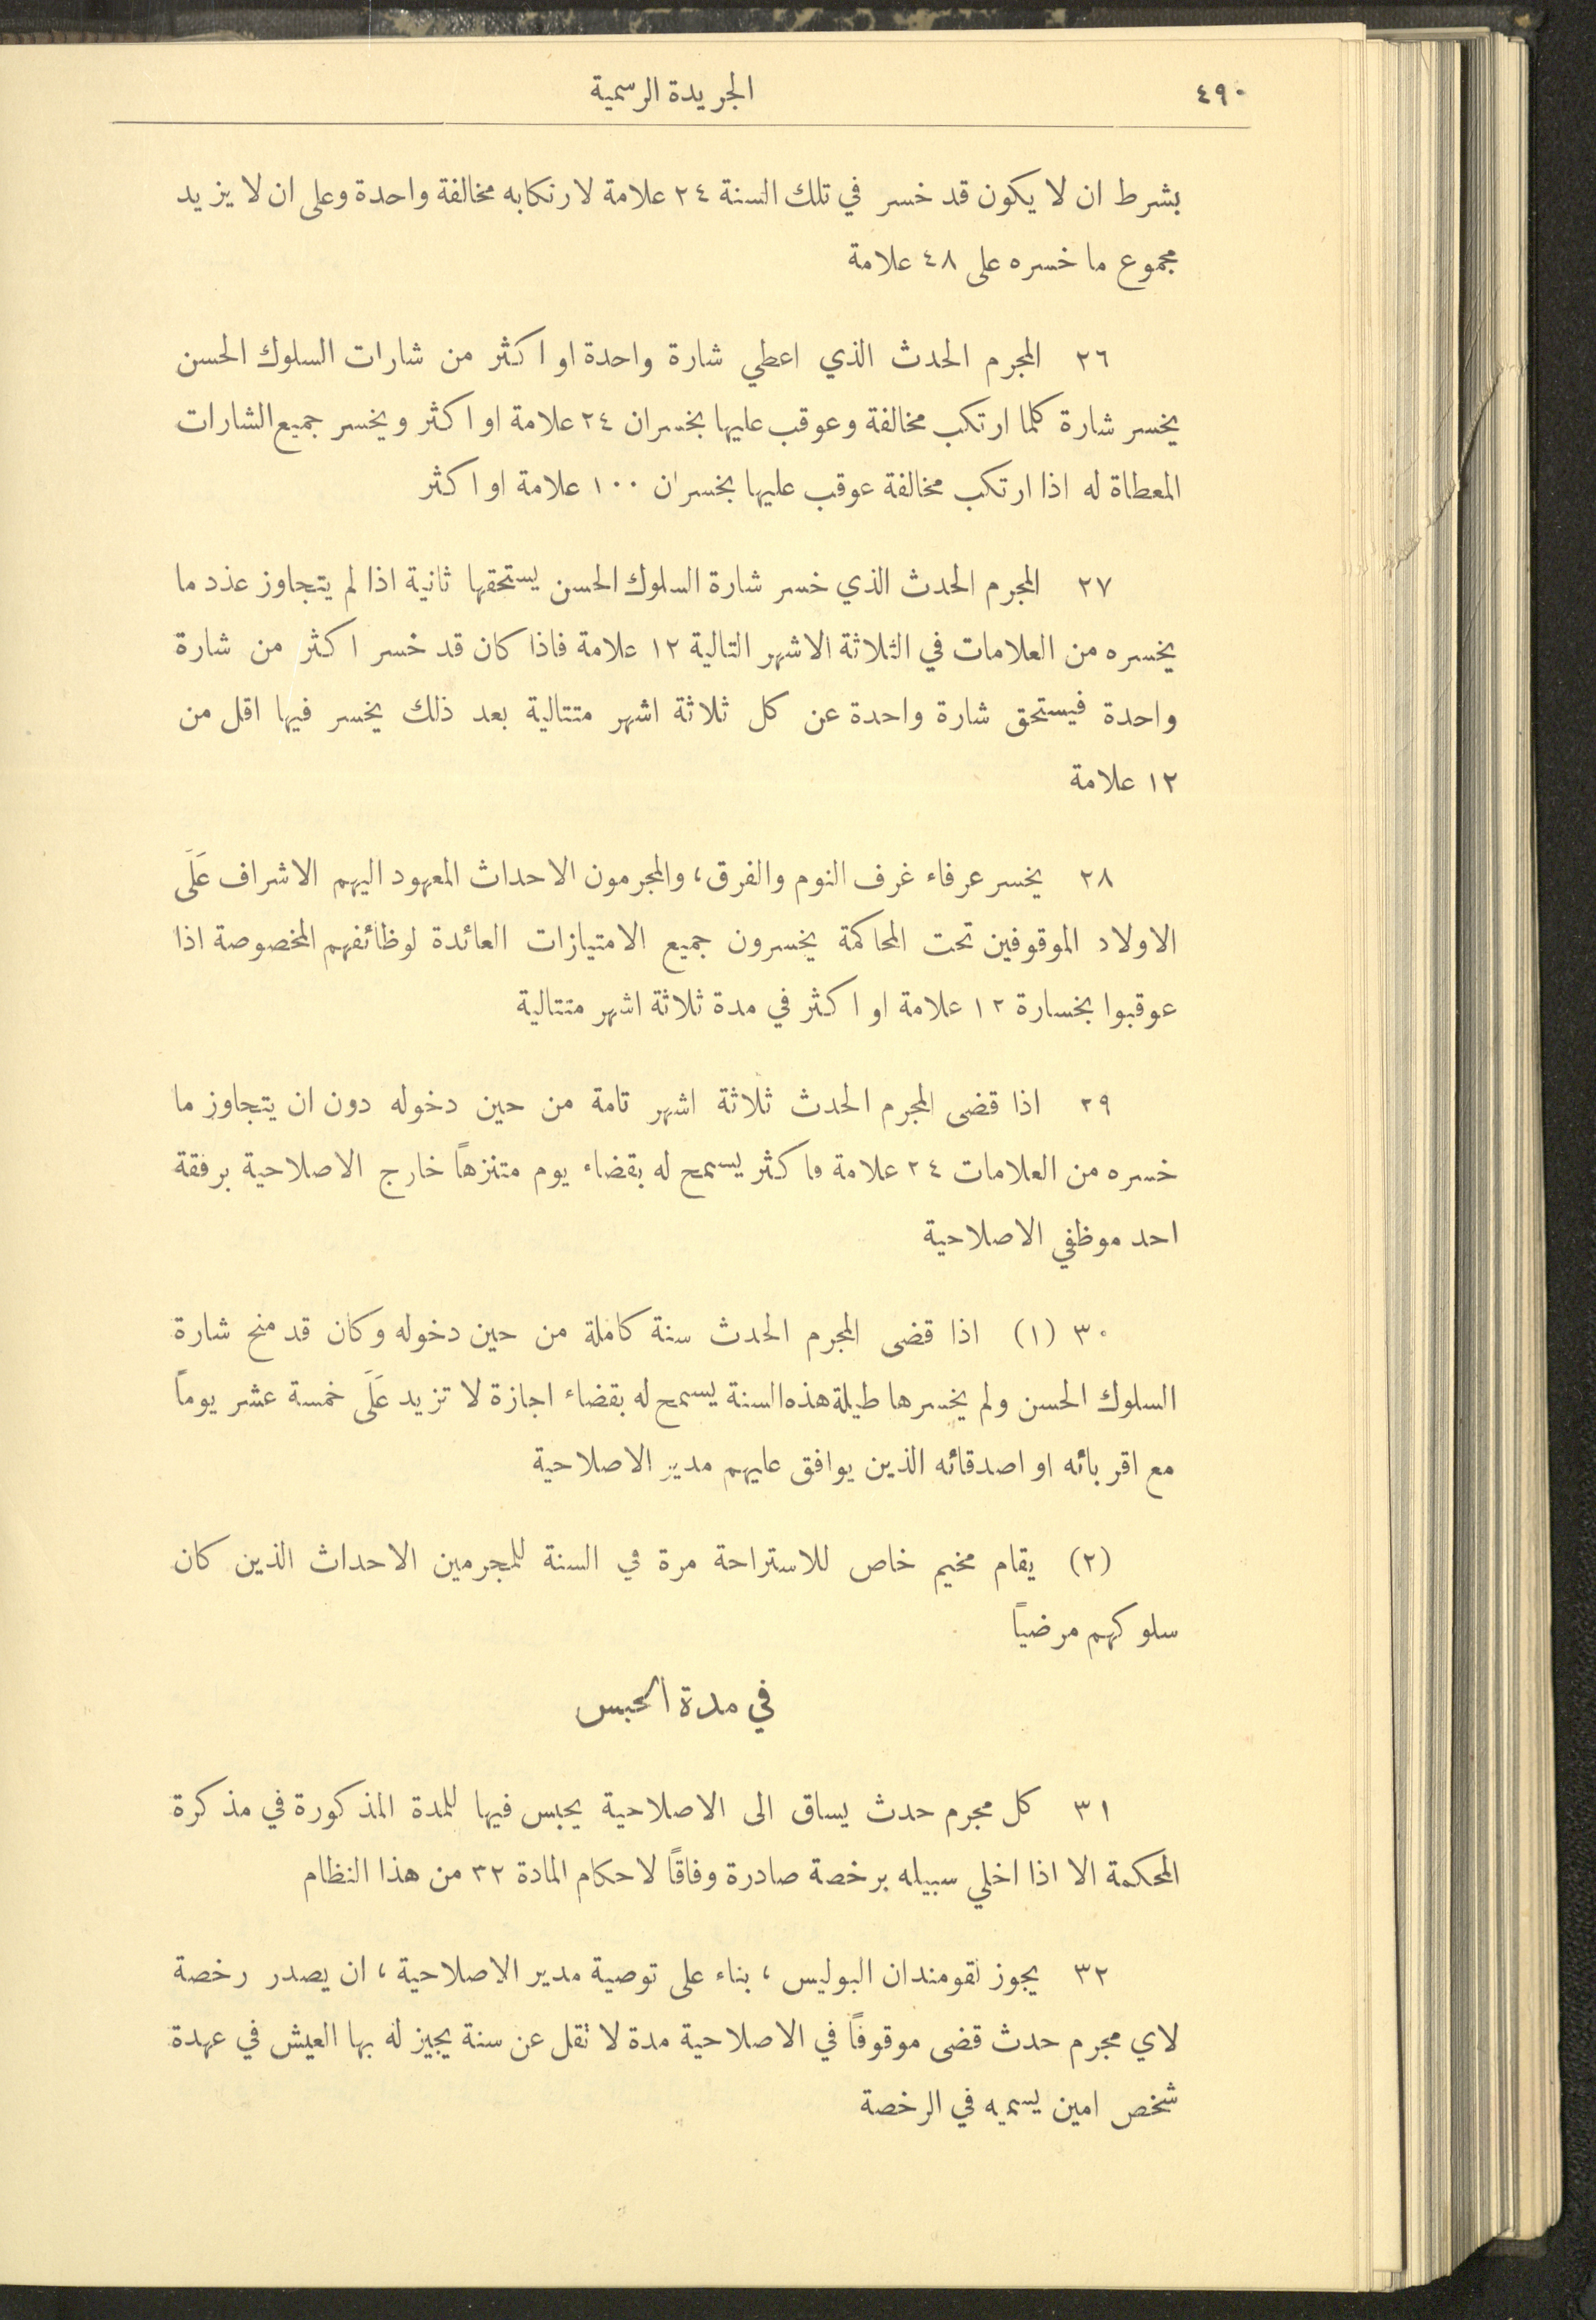 ٤٩٠
الجريدة الرسمية
بشرط ان لا يكون قد خسر في تلك السنة ٢٤ علامة لارتكابه مخالفة واحدة وعلى ان لا يزيد
مجموع ما خسره على ٤٨ علامة
٢٦ المجرم الحدث الذي اعطي شارة واحدة او اكثر من شارات السلوك الحسن
يخسر شارة كلما ارتكب مخالفة وعوقب عليها بخسران ٢٤ علامة او اكثر ويخسر جميع الشارات
المعطاة له اذا ارتكب مخالفة عوقب عليها بخسران ١٠٠ علامة او اكثر
٢٧ المجرم الحدث الذي خسر شارة السلوك الحسن يستحقها ثانية اذا لم يتجاوز عدد ما
يخسره من العلامات في الثلاثة الاشهر التالية ١٢ علامة فاذا كان قد خسر اكثر من شارة
واحدة فيستحق شارة واحدة عن كل ثلاثة اشهر متتالية بعد ذلك يخسر فيها اقل من
١٢ علامة
٢٨ يخسر عرفاء غرف النوم والفرق، والمجرمون الاحداث المعهود اليهم الاشراف عَلَى
الاولاد الموقوفين تحت المحاكمة يخسرون جميع الامتيازات العائدة لوظائفهم المخصوصة اذا
عوقبوا بخسارة ١٢ علامة او اكثر في مدة ثلاثة اشهر متتالية
٢٩ اذا قضى المجرم الحدث ثلاثة اشهر تامة من حين دخوله دون ان يتجاوز ما
خسره من العلامات ٢٤ علامة فاكثر يسمح له بقضاء يوم متنزهاً خارج الاصلاحية برفقة
احد موظفي الاصلاحية
٣٠ (١) اذا قضى المجرم الحدث سنة كاملة من حين دخوله وكان قد منح شارة
السلوك الحسن ولم يخسرها طيلة هذه السنة يسمح له بقضاء اجازة لا تزيد عَلَى خمسة عشر يوماً
مع اقربائه او اصدقائه الذين يوافق عليهم مدير الاصلاحية
(٢) يقام مخيم خاص للاستراحة مرة في السنة للمجرمين الاحداث الذين كان
سلوكهم مرضياً
في مدة الحبس
٣١ كل مجرم حدث يساق الى الاصلاحية يحبس فيها للمدة المذكورة في مذكرة
المحكمة الا اذا اخلي سبيله برخصة صادرة وفاقاً لاحكام المادة ٣٢ من هذا النظام
٣٢ يجوز لقومندان البوليس، بناء على توصية مدير الاصلاحية، ان يصدر رخصة
لاي مجرم حدث قضى موقوفاً في الاصلاحية مدة لا تقل عن سنة يجيز له بها العيش في عهدة
شخص امين يسميه في الرخصة